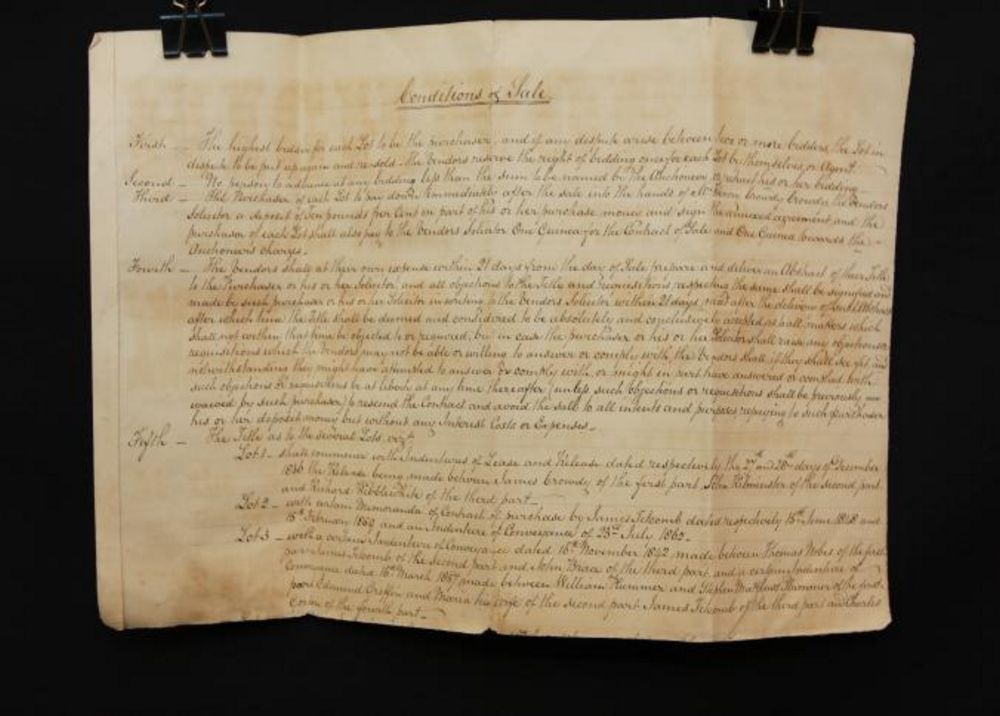 Conditions of Sale
First — The highest bidder for each Lot to be the purchaser, and if any dispute arise between two or more bidders the Lot in
dispute to be put up again and re-sold. The Vendors reserve the right of bidding once for each Lot by themselves or Agent.
Second — No person to advance at any bidding less than the sum to be named by the Auctioneer or retract his or her bidding
Third — The Purchaser of each Lot to pay down immediately after the sale into the hands of Mr Crowdy the Vendors
Solicitor a deposit of Ten pounds per Cent in part of his or her purchase money and sign the annexed agreement and the
purchaser of each Lot shall also pay to the Vendors Solicitor One Guinea for the Contract of Sale and One Guinea towards the
Auctioneers charges.
Fourth — The Vendors shall at their own expense within 21 days from the day of Sale prepare and deliver an Abstract of their Title
to the Purchaser or his or her Solicitor and all objections to the Title and requisitions respecting the same shall be signified and
made by such purchaser or his or her Solicitor in writing to the Vendors Solicitor within 21 days next after the delivery of such Abstract
after which time the Title shall be deemed and considered to be absolutely and conclusively accepted as to all matters which
shall not within that time be objected to or required, but in case the purchaser or his or her Solicitor shall raise any objections or
requisitions which the Vendors may not be able or willing to answer or comply with the Vendors shall if they shall see fit and
notwithstanding they might have attempted to answer or comply with or might in part have answered or complied with
such objections or requisitions be at liberty at any time thereafter (unless such objections or requisitions shall be previously
waived by such purchaser) to rescind the Contract and avoid the sale to all intents and purposes repaying to such purchaser
his or her deposit money but without any Interest Costs or Expenses.
Fifth — The Title as to the several Lots, vizt
Lot 1 — shall commence with Indentures of Lease and Release dated respectively the 27th and 28th days of December
1816 the Release being made between James Crowdy of the first part, John Kilminster of the second part
and Richard Kibblewhite of the third part —
Lot 2 — with certain Memoranda of Contract of purchase by James Titcomb dated respectively 15th June 1848 and
15th February 1850 and an Indenture of Conveyance of 23rd July 1860 —
Lot 3 — with a certain Indenture of Conveyance dated 16th November 1842 made between Thomas Nobes of the first
part James Titcomb of the second part and John Brace of the third part and a certain Indenture of
Conveyance dated 16th March 1857 made between William Plummer and Stephen Plummer of the first
part Edmund and Maria his wife of the second part James Titcomb of the third part and Charles
of the fourth part —